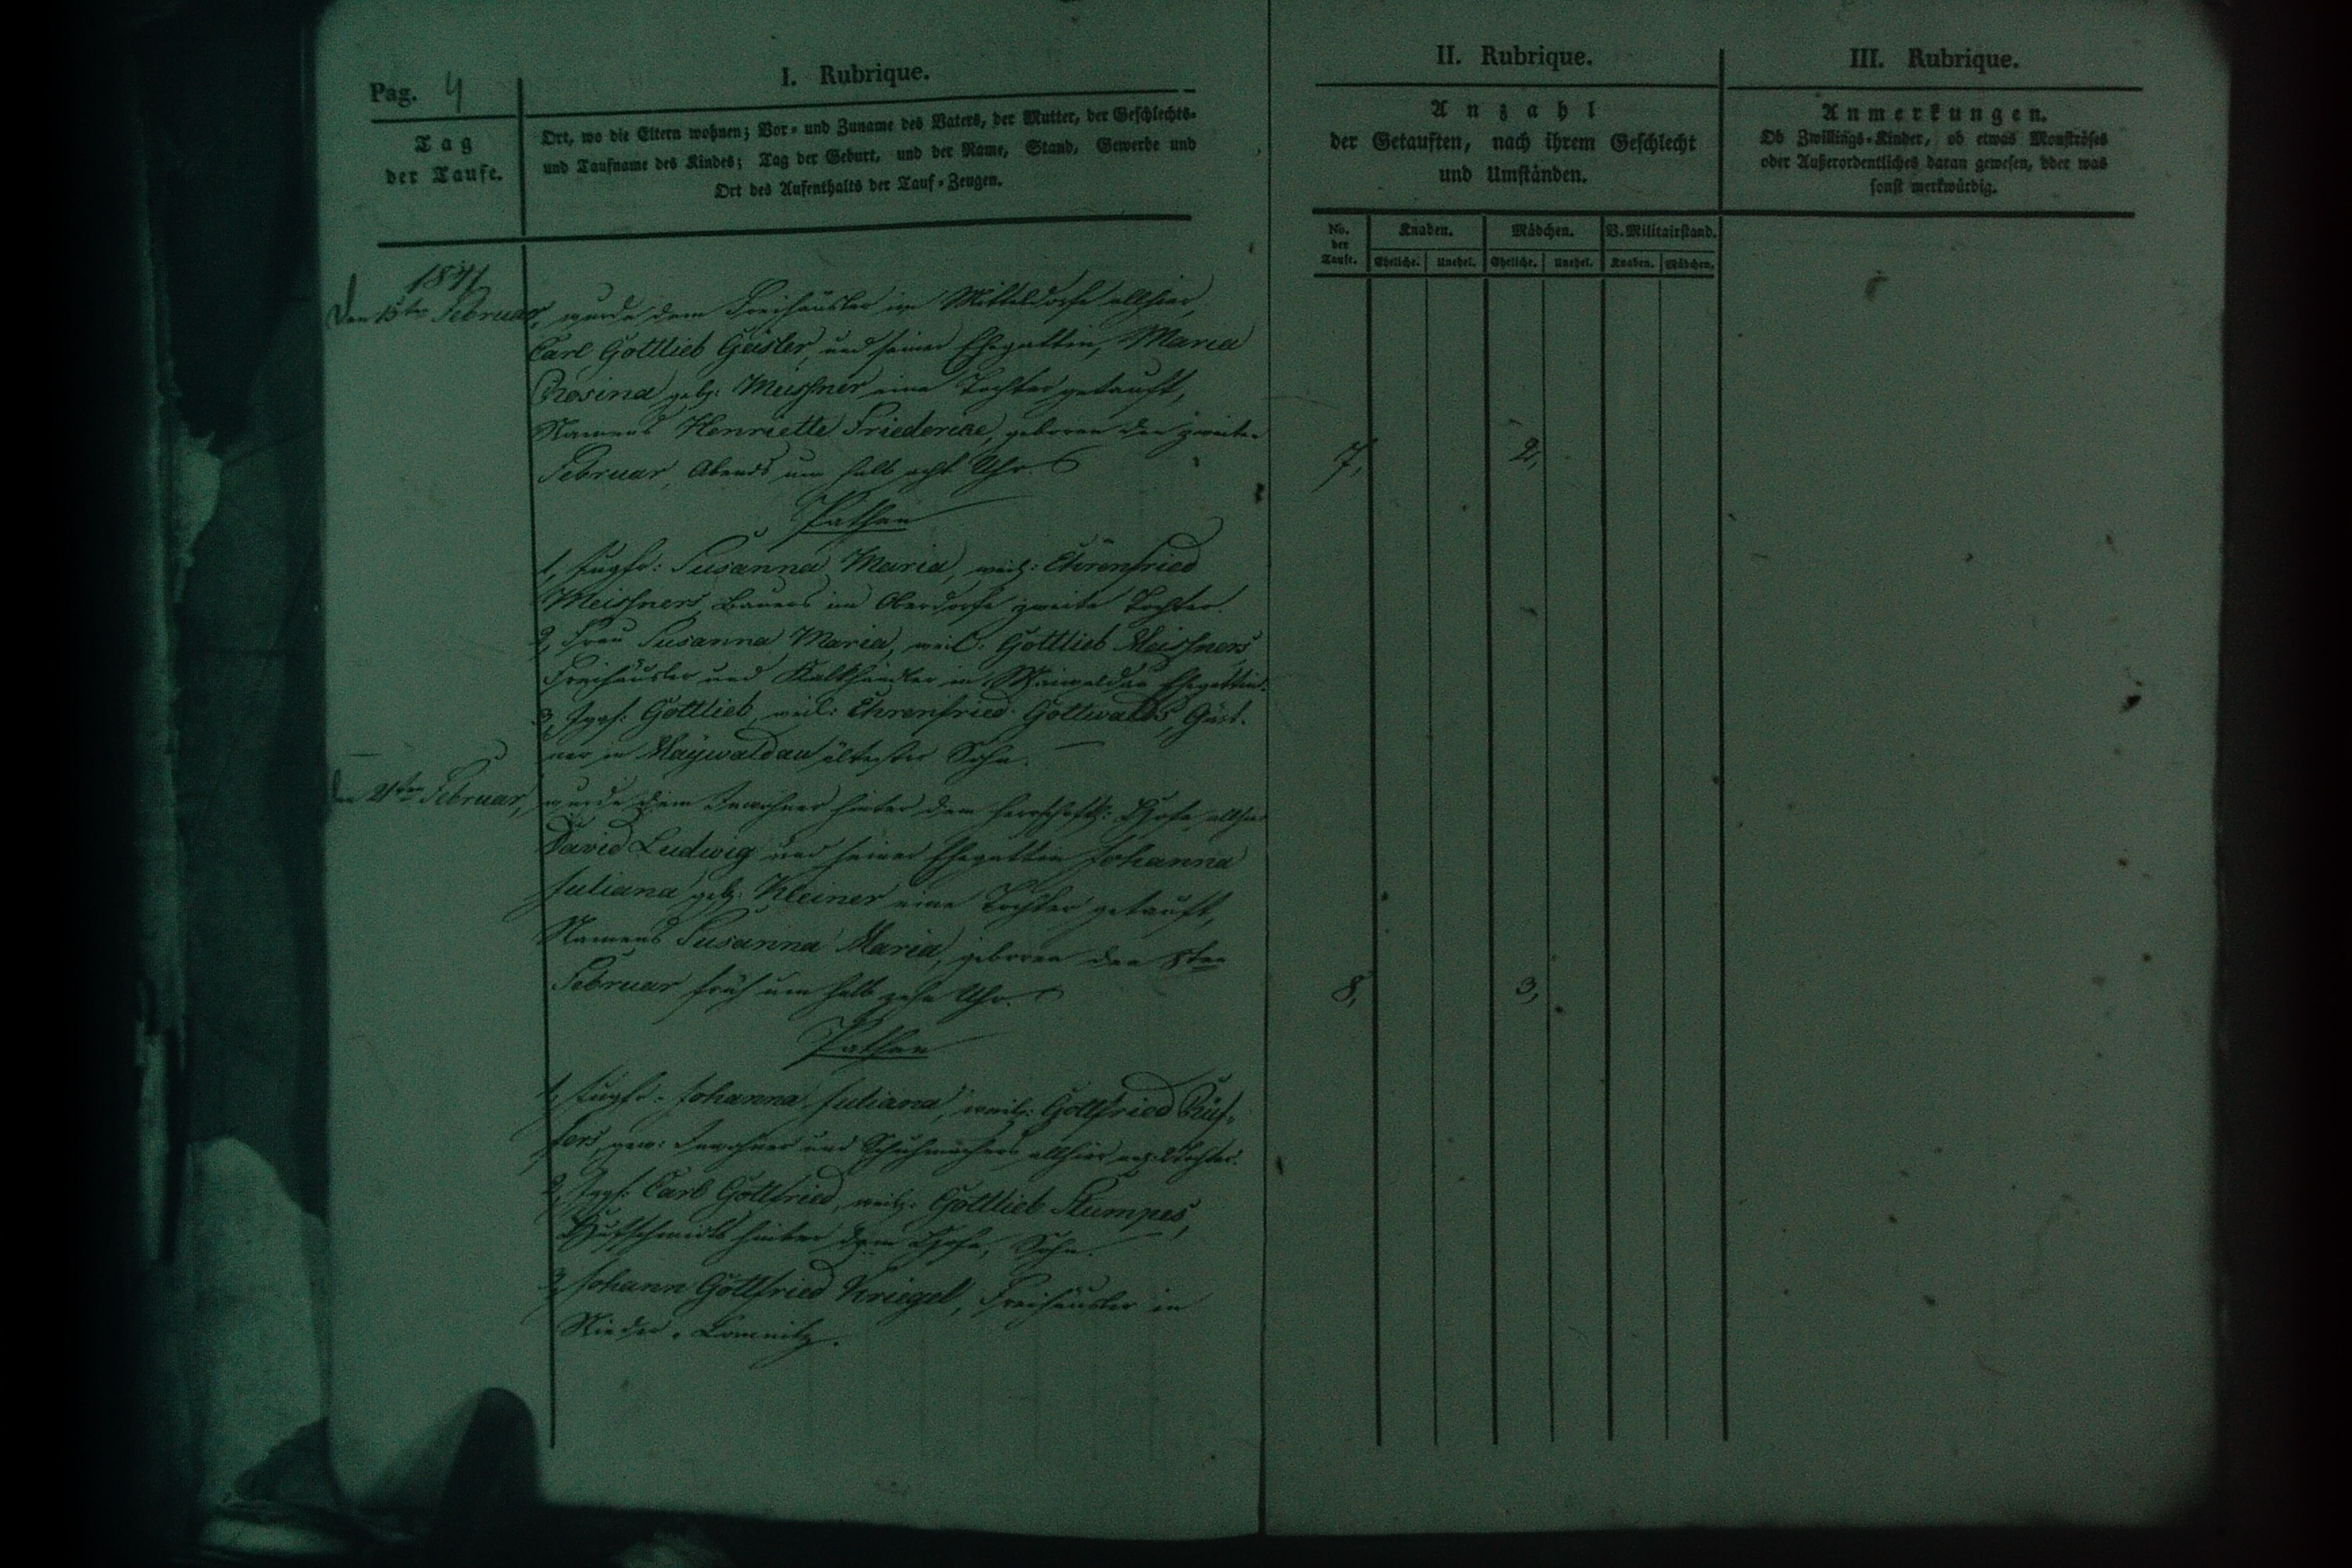 Pag. 4
I. Rubrique.
Tag
der Taufe.
Ort, wo die Eltern wohnen; Vor- und Zuname des Vaters, der Mutter, der Geschlechts-
und Taufname des Kindes; Tag der Geburt, und der Name, Stand, Gewerbe und
Ort des Aufenthalts der Tauf-Zeugen.
1841
Den 15ten Februar, wurde dem Freihäusler im Mitteldorfe allhier,
Carl Gottlieb Geisler, und seiner Ehegattin, Maria
Rosina geb: Meissner eine Tochter getauft,
Namens Henriette Friedericke, geboren den zweiten
Februar, Abends um halb acht Uhr.
Pathen
1, Jungfr: Susanna Maria, weil: Ehrenfried
Meissners, Bauers im Oberdorfe zweite Tochter.
2, Frau Susanna Maria, weil: Gottlieb Meissners
Freihäusler und Kalkhändler in Maiwaldau Ehegattin.
3, Jggs: Gottlieb, weil: Ehrenfried Gottwalds, Gärt-
ner in Maywaldau ältester Sohn.
den 21ten Februar, wurde dem Inwohner hinter dem herrschaftl: Hofe allhier
David Ludwig und seiner Ehegattin Johanna
Juliana geb: Kleiner eine Tochter getauft,
Namens Susanna Maria, geboren den 8ten
Februar früh um halb zehn Uhr.
Pathen
1, Jungfr: Johanna Juliana, weil: Gottfried
gew: Inwohner und Schuhmachers allhier Tochter.
2, Jggs: Carl Gottfried, weil: Gottlieb Stumpes,
Hufschmidts hinter dem Hofe, Sohn.
3, Johann Gottfried Kriegel, Freihäusler in
Nieder-Lomnitz.
II. Rubrique.
Anzahl
der Getauften, nach ihrem Geschlecht
und Umständen.
No. der Taufe. Knaben. Mädchen. V. Militairstand.
Eheliche. Unehel. Eheliche. Unehel. Knaben. Mädchen.
7, 2,
8, 3,
III. Rubrique.
Anmerkungen.
Ob Zwillings-Kinder, ob etwas Monströses
oder Außerordentliches daran gewesen, oder was
sonst merkwürdig.